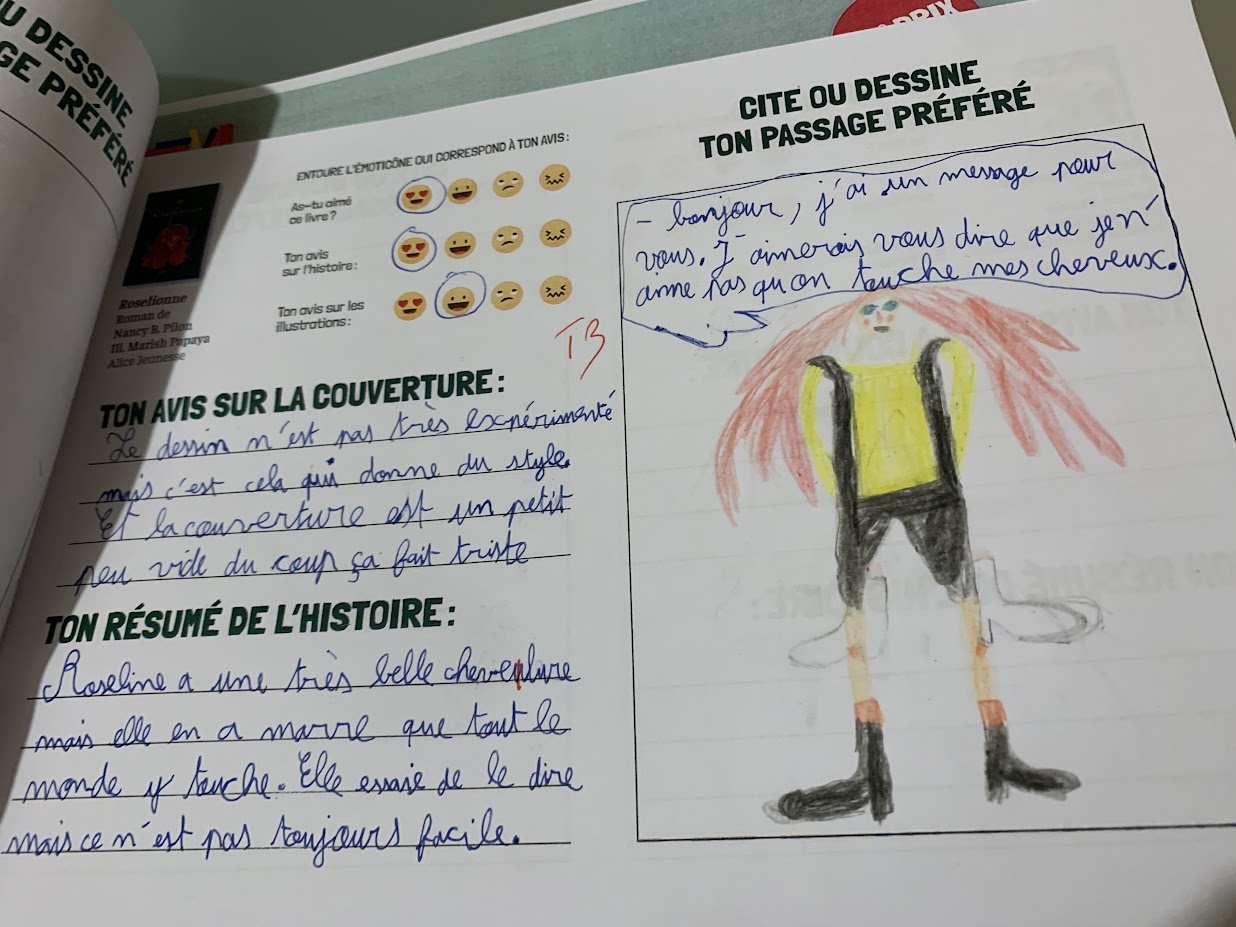 U DESSINE
GE PRÉFÉRÉ
PRIX
ENTOURE L'ÉMOTICÔNE QUI CORRESPOND À TON AVIS :
As-tu aimé
ce livre ?
Ton avis
sur l'histoire :
Ton avis sur les
illustrations :
Roselionne
Roman de
Nancy B. Pilon
Ill. Marish Papaya
Alice Jeunesse
TB
TON AVIS SUR LA COUVERTURE :
Le dessin n'est pas très expérimenté
mais c'est cela qui donne du style.
Et la couverture est un petit
peu vide du coup ça fait triste
TON RÉSUMÉ DE L'HISTOIRE :
Roseline a une très belle chevelure
mais elle en a marre que tout le
monde y touche. Elle essaie de le dire
mais ce n'est pas toujours facile.
CITE OU DESSINE
TON PASSAGE PRÉFÉRÉ
- bonjour, j'ai un message pour
vous. J'aimerais vous dire que je n'
aime pas qu'on touche mes cheveux.